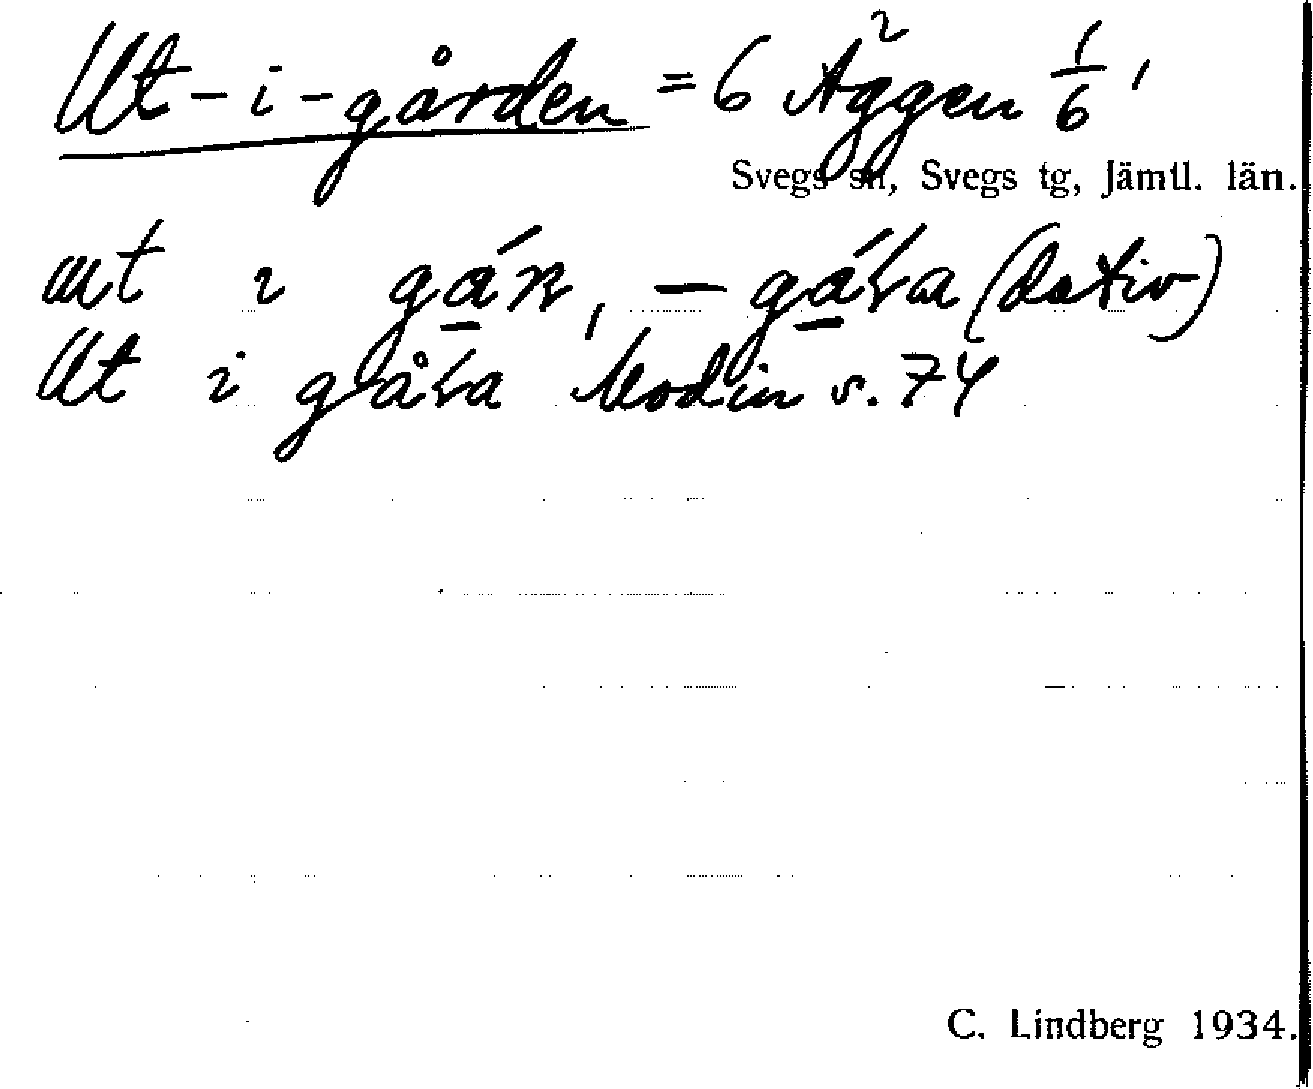 Ut-i-gården = 6 Äggen² 1/6,
Svegs sn, Svegs tg, Jämtl. län.
ut i gán, — gáɽa (dativ)
Ut i gåra Modin s. 74
C. Lindberg 1934.